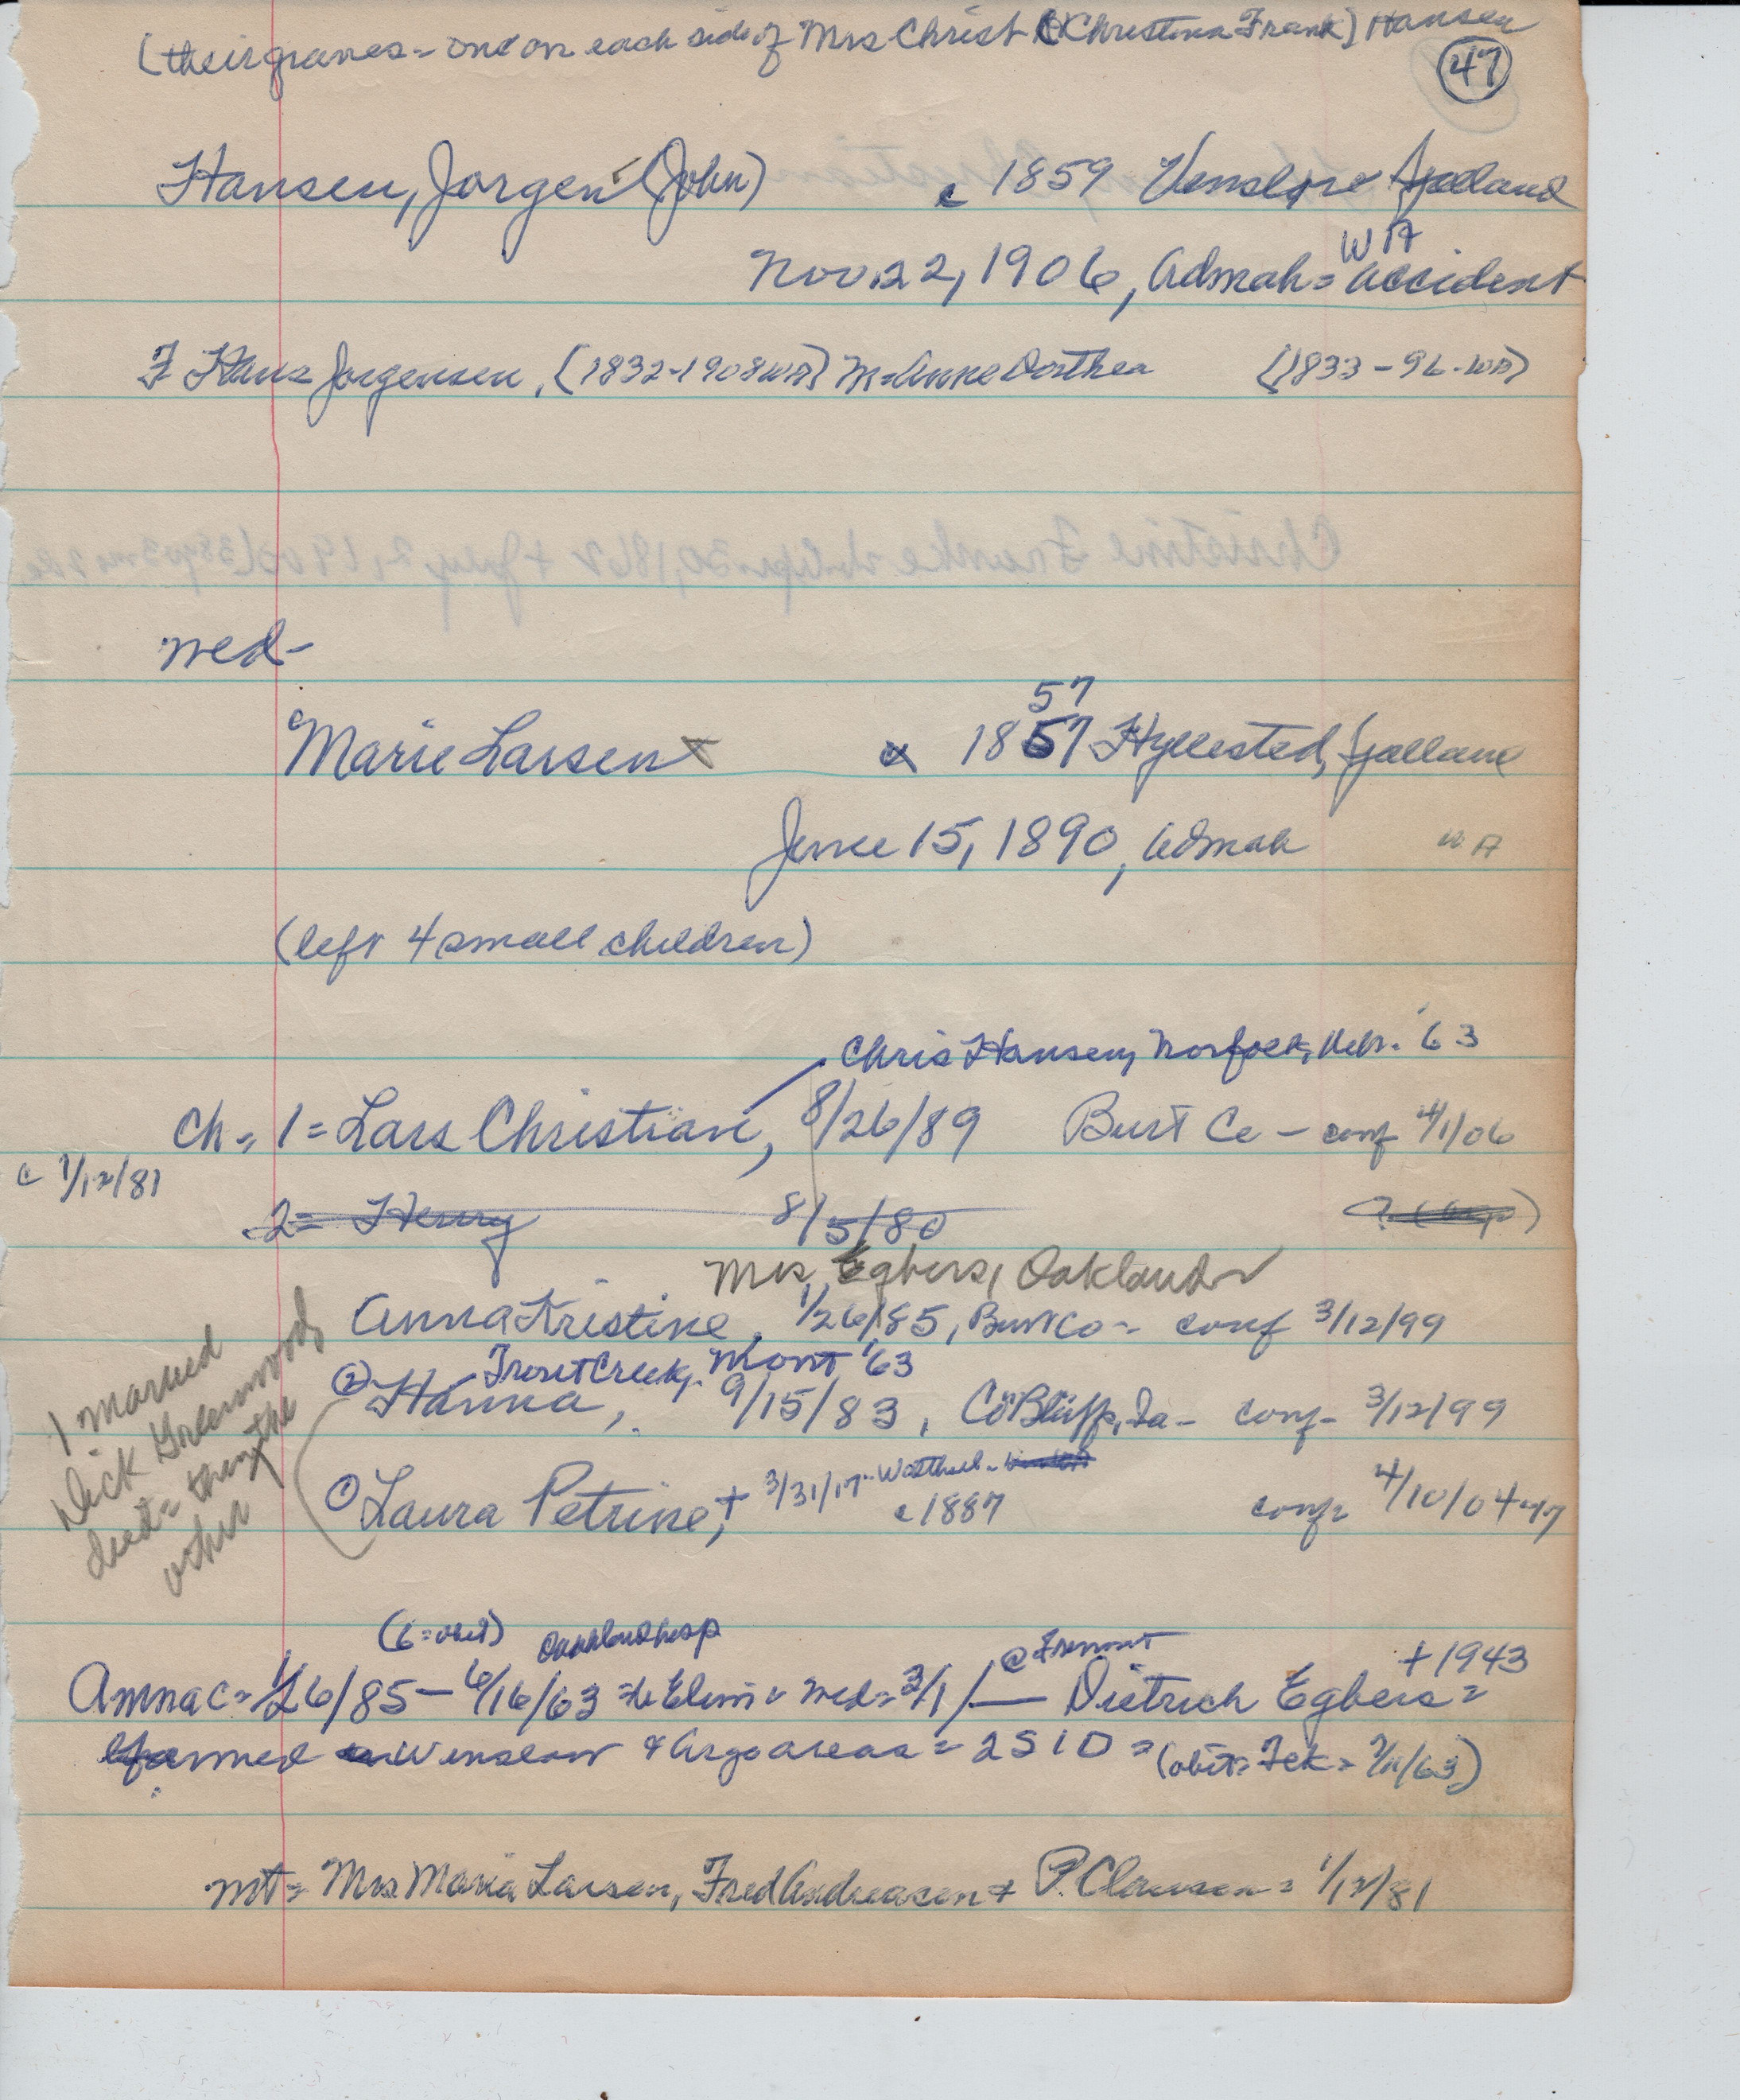 (their graves - one on each side of Mrs Christ (Christina Frank) Hansen
47
Hansen, Jorgen (John) c 1859 Venslove Sjelland
WA
Nov. 22, 1906, Admah = accident
F Hans Jorgensen, (1832-1908 WA) M = Anne Dorthea (1833-96-WA)
wed-
57
Marie Larsen 1857 Hyllested, Sjelland
June 15, 1890, Admah WA
(left 4 small children)
Chris Hansen, Norfolk, Nebr. '63
Ch = 1 = Lars Christian, 8/26/89 Burt Co - conf 4/1/06
c 1/12/81
2 = Henry 8/5/80
Mrs Egbers, Oakland
Anna Kristine, 1/26/85, Burt Co - conf 3/12/99
Trout Creek, Mont '63
② Hanna, 9/15/83, Co Bluffs, Ia - conf - 3/12/99
① Laura Petrine, + 3/31/17 c 1887 conf = 4/10/04
1 married
Dick Greenwood,
died = then the
other
(6 = obit) Oakland hosp @ Fremont + 1943
Anna c = 1/26/85 - 6/16/63 = Elim = wed = 3/1/— Dietrich Egbers =
farmed Winslow & Argo areas = 2 S 1 D = (obit = Tek = 7/11/63)
mt = Mrs Maria Larsen, Fred Andreasen + P. Clausen = 1/12/81